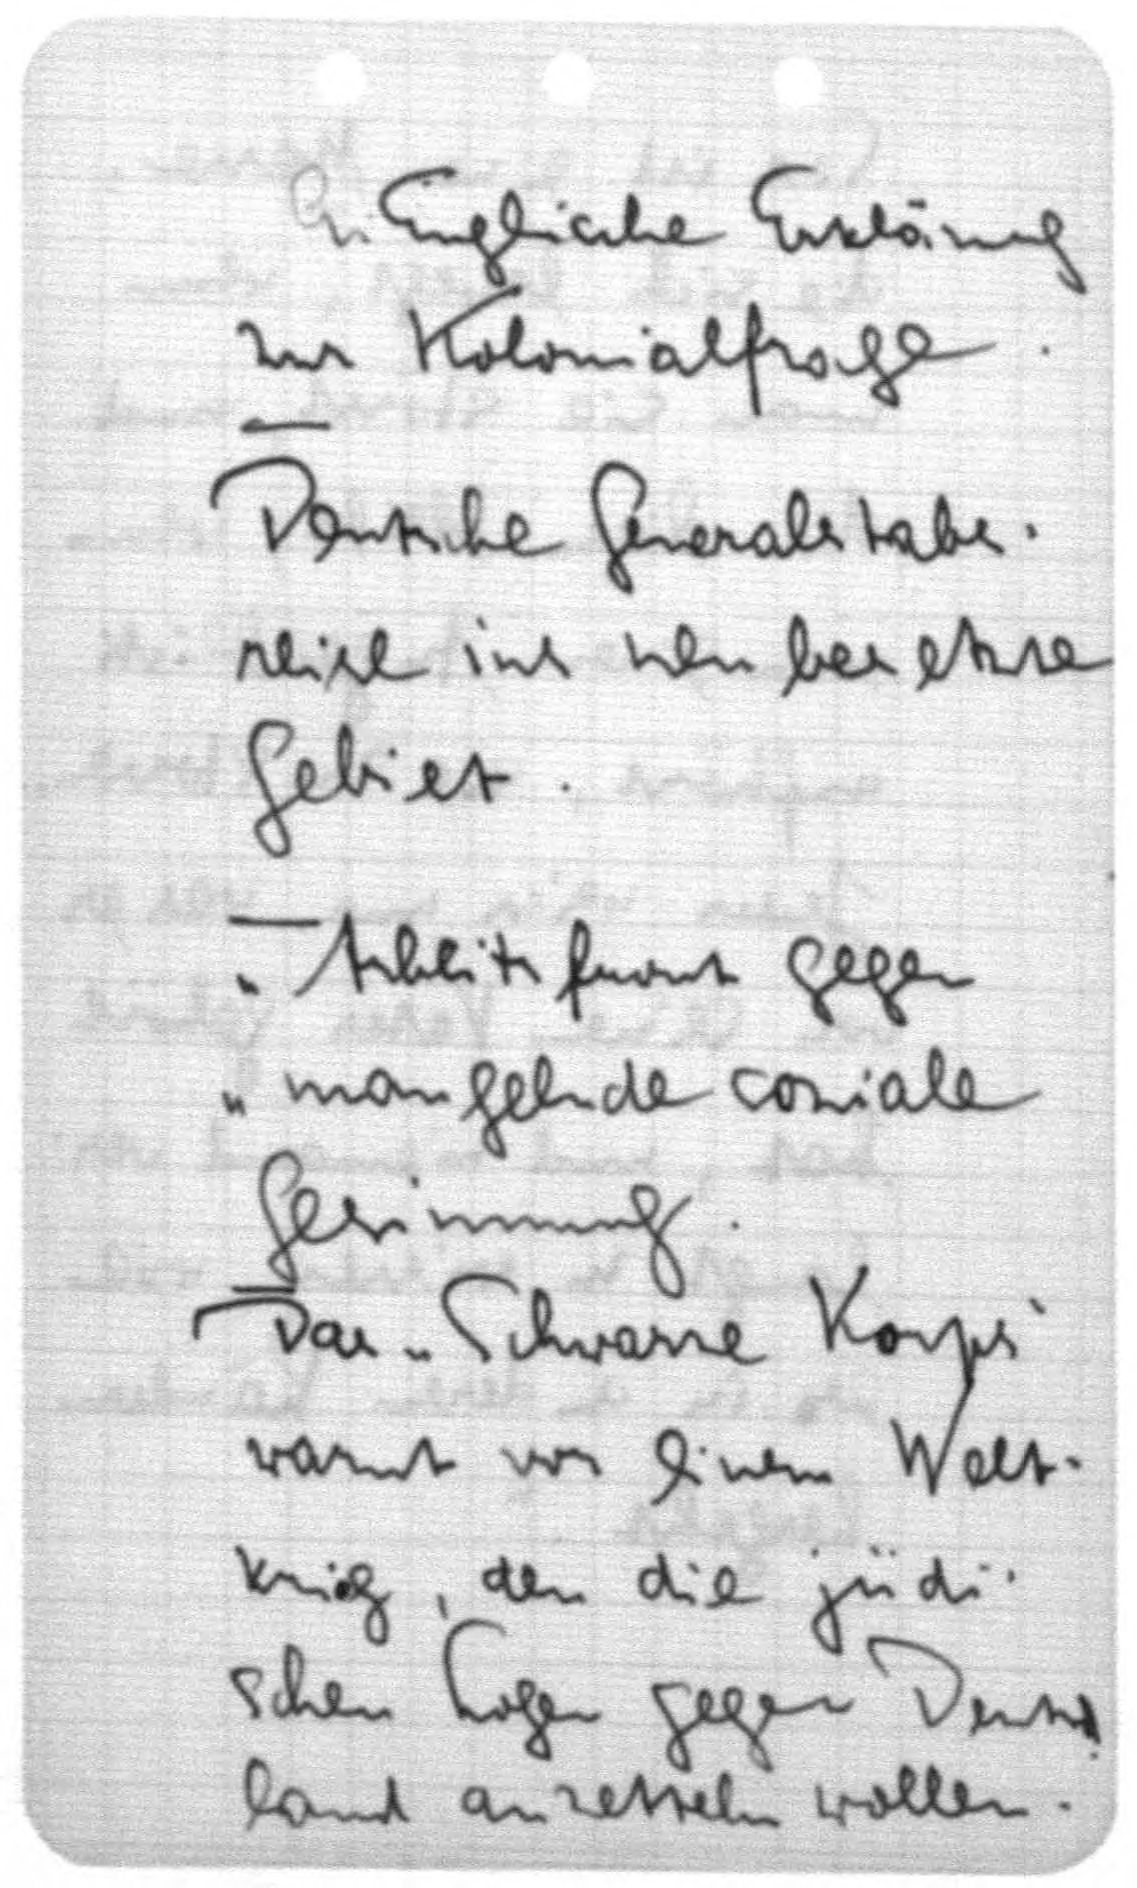 Englische Erklärung
zur Kolonialfrage.
Deutsche Generalstabs-
reise ins neu besetzte
Gebiet.
„ Arbeitsfront gegen
„ mangelnde soziale
Gesinnung.
Das „Schwarze Korps"
warnt vor einem Welt-
krieg, den die jüdi-
schen Logen gegen Deutsch
land anzetteln wollen.